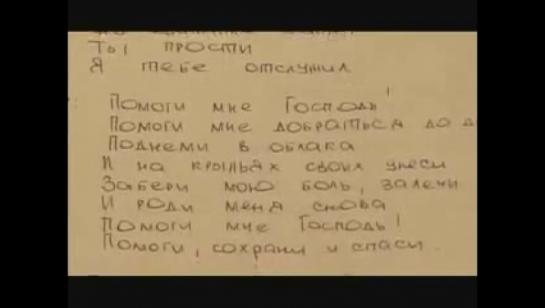 Ты прости
Я тебе отслужил
Помоги мне Господь!
Помоги мне добраться до
Подними в облака
И на крыльях своих унеси
Забери мою боль, залечи
И роди меня снова
Помоги мне Господь!
Помоги, сохрани и спаси.